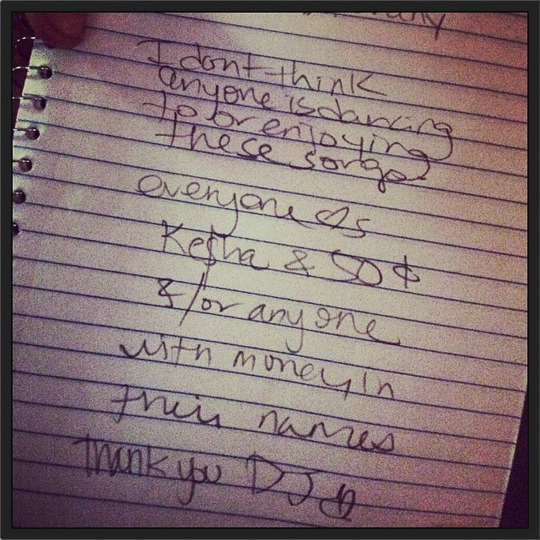 I dont think
anyone is dancing
to or enjoying
these songs
everyone ♡s
Ke$ha & 50 ¢
&/or anyone
with money in
their names
Thank you DJ